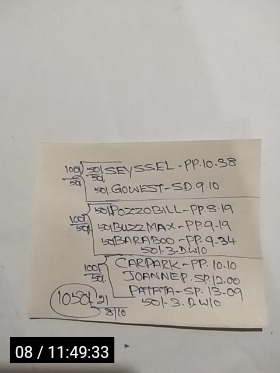 100/ 50/ SEYSSEL - PP. 10.38
50/ 50/ GOWEST - SD. 9.10
50/ POZZOBILL - PP. 8.19
100/ 50/ BUZZMAX - PP. 9.19
50/ 50/ BARABOO - PP. 9.34
50/-3.DW/O
CARPARK - PP. 10.10
100/ JOANNEP. SP. 12.00
50/ PATATA - SP. 13.09
50/-3.DW/O
1050/ 21
8/10
08 / 11:49:33